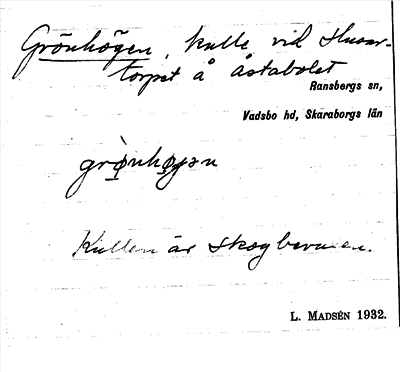 Grönhögen, kulle vid Husar-
torpet å Åstabolet
Ransbergs sn,
Vadsbo hd, Skaraborgs län
grø̀nhøgən
Kullen är skogbevuxen.
L. Madsén 1932.